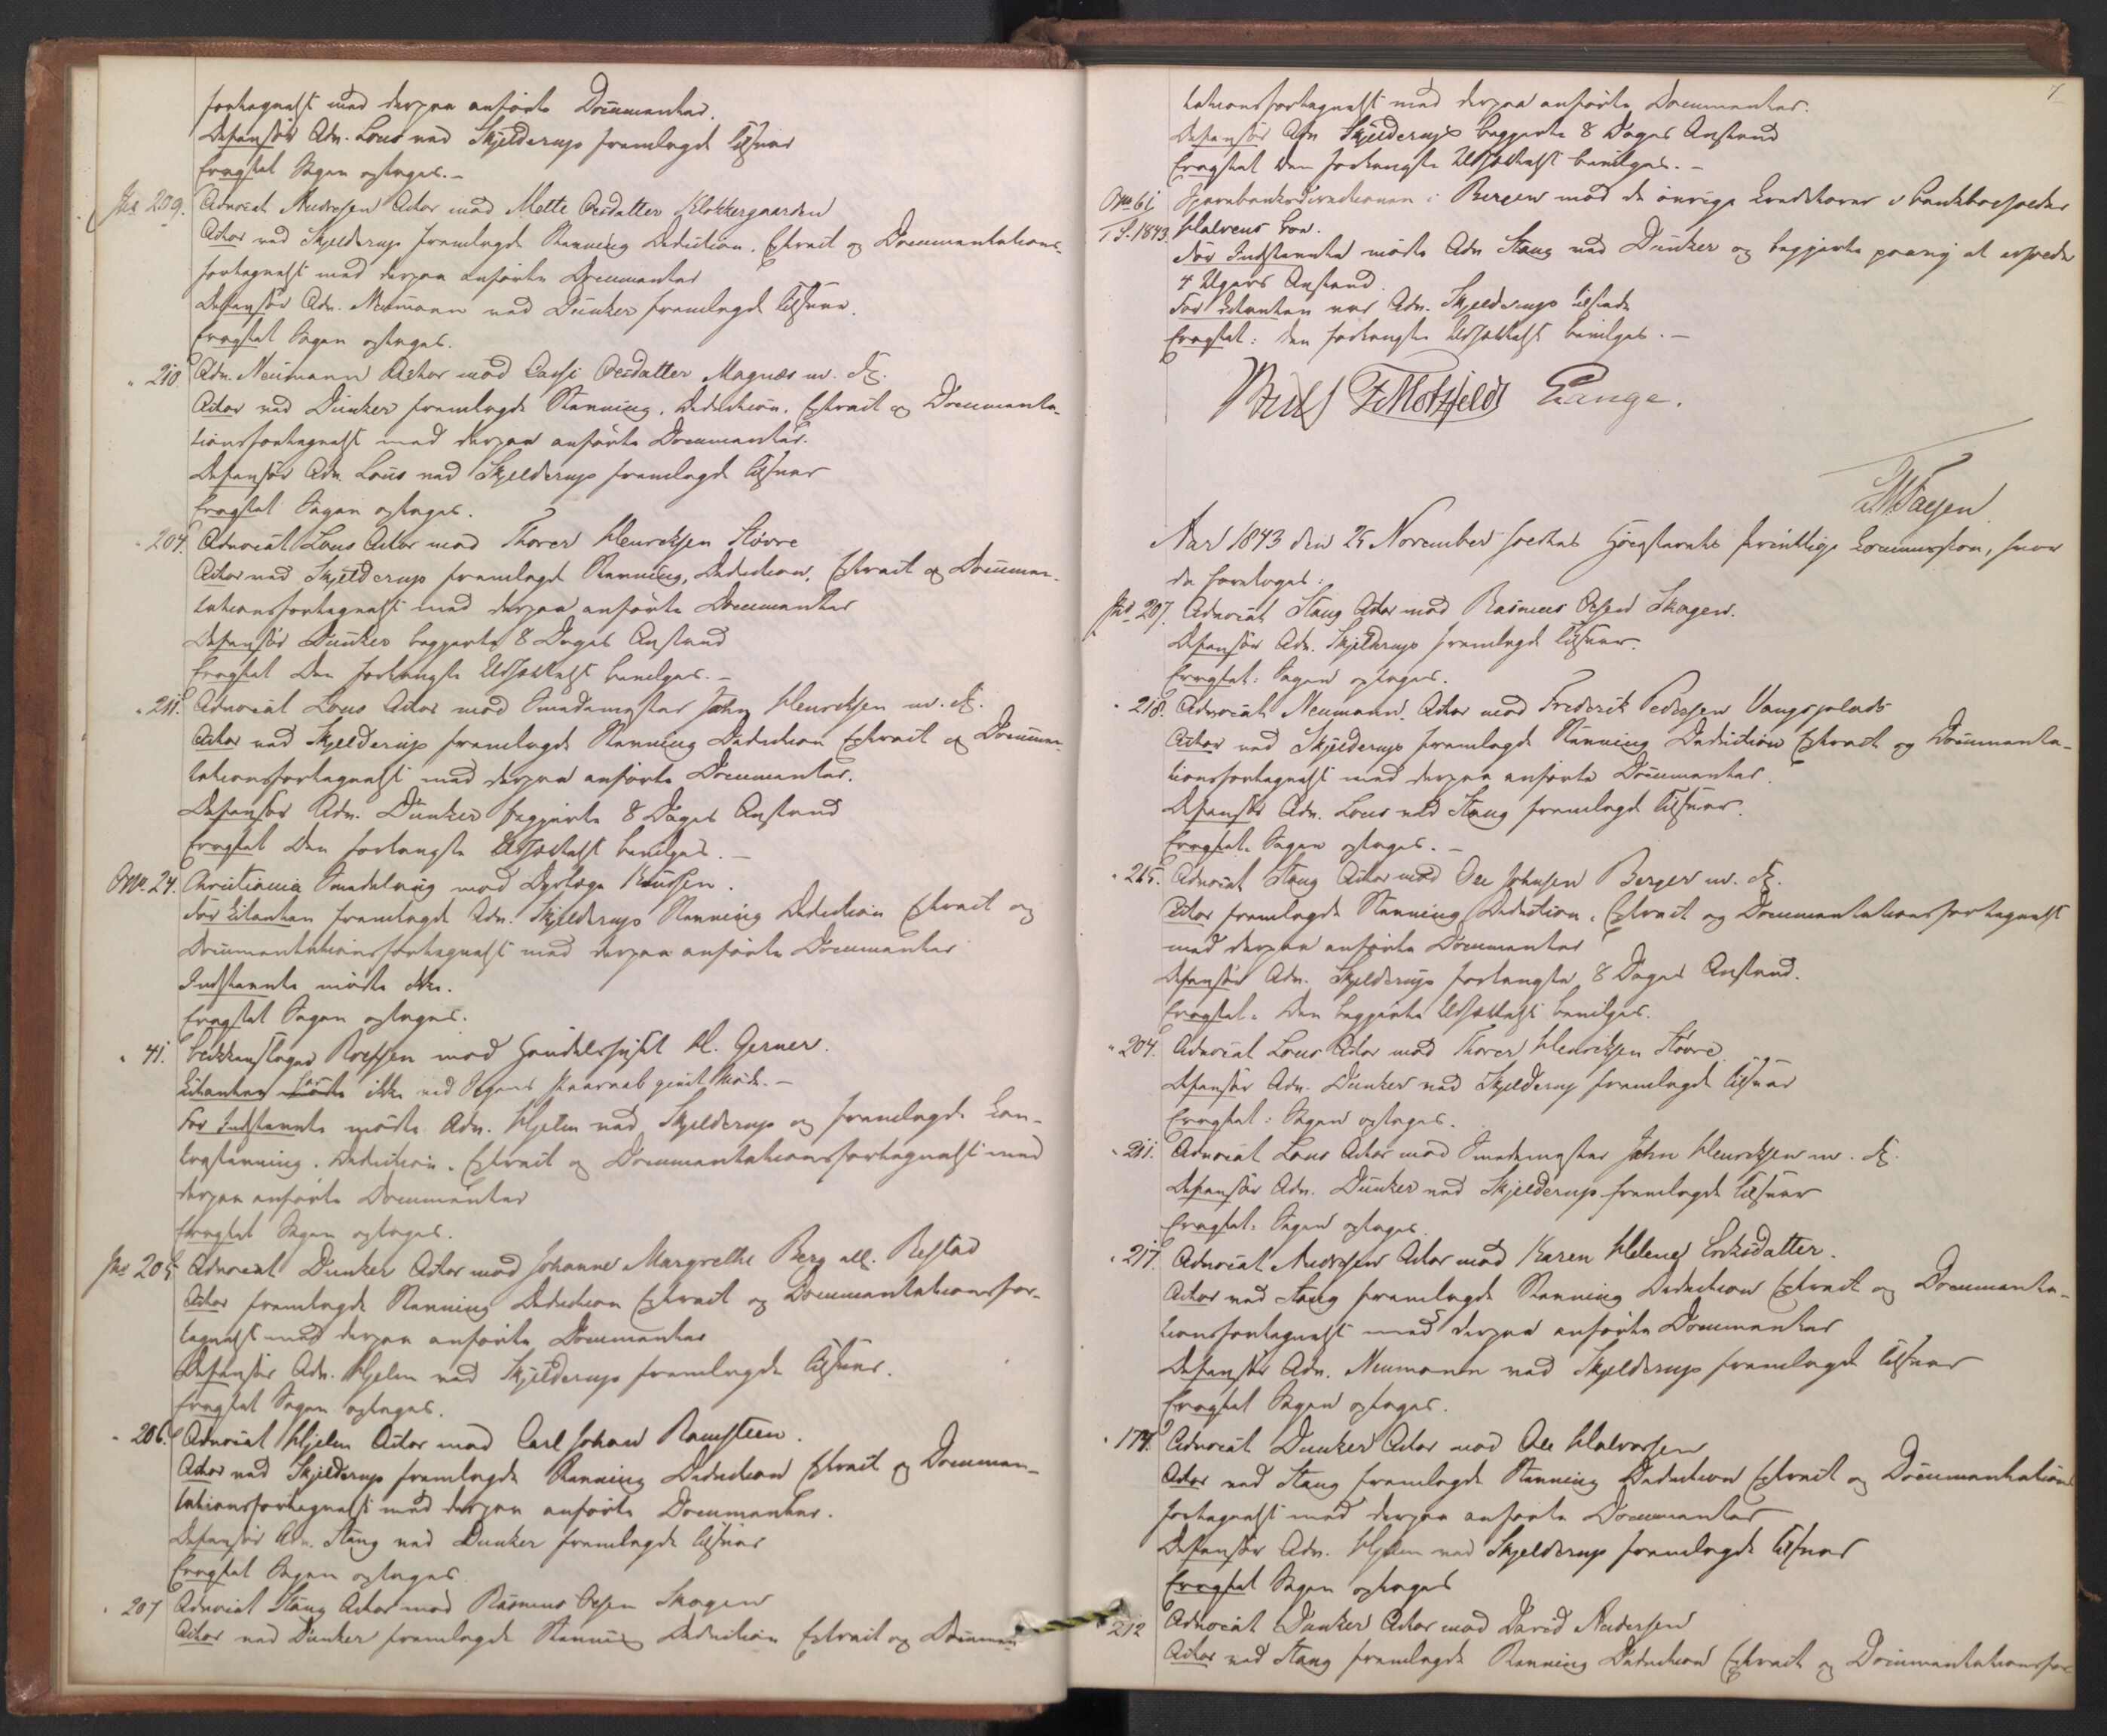 fortegnelse med derpaa anførte Documenter.
Defensor Adv. Lous ved Skjelderup fremlagde Tilsvar
Eragtet Sagen optages. –
Jus 209. Advocat Andresen Actor mod Mette Olsdatter Klokkergaarden
Actor ved Skjelderup fremlagde Stævning Deduction, Extract og Documentations-
fortegnelse med derpaa anførte Documenter
Defensor Adv. Neumann ved Dunker fremlagde Tilsvar.
Eragtet Sagen optages.
" 210. Adv. Neumann Actor mod Olsdatter Magnæs m. fl.
Actor ved Dunker fremlagde Stævning, Deduction, Extract og Documenta-
tionsfortegnelse med derpaa anførte Documenter.
Defensor Adv. Lous ved Skjelderup fremlagde Tilsvar
Eragtet Sagen optages.
" 204. Advocat Lous Actor mod Thorer Henriksen Støvre
Actor ved Skjelderup fremlagde Stævning, Deduction, Extract og Documen-
tationsfortegnelse med derpaa anførte Documenter
Defensor Dunker begjerte 8 Dages Anstand
Eragtet Den forlangte Udsættelse bevilges. –
" 211. Advocat Lous Actor mod Smedemester John Henriksen m. fl.
Actor ved Skjelderup fremlagde Stævning Deduction Extract og Documen-
tationsfortegnelse med derpaa anførte Documenter.
Defensor Adv. Dunker begjerte 8 Dages Anstand
Eragtet Den forlangte Udsættelse bevilges. –
No. 24. Christiania Smedelaug mod Knudsen.
For Citanten fremlagde Adv. Skjelderup Stævning Deduction Extract og
Documentationsfortegnelse med derpaa anførte Documenter
Indstævnte mødte ikke.
Eragtet Sagen optages.
" 41. Bekkenslager Roessen mod Handelshuset H. Gerner.
Citanten har ikke ved Sagens Paaraab givet Møde. –
For Indstævnte mødte Adv. Hjelm ved Skjelderup og fremlagde Con-
trastævning, Deduction, Extract og Documentationsfortegnelse med
derpaa anførte Documenter
Eragtet Sagen optages.
Jus 205 Advocat Dunker Actor mod Johanne Margrethe Berg all. Refstad
Actor fremlagde Stævning Deduction Extract og Documentationsfor-
tegnelse med derpaa anførte Documenter
Defensor Adv. Hjelm ved Skjelderup fremlagde Tilsvar.
Eragtet Sagen optages.
" 206. Advocat Hjelm Actor mod Carl Johan Ramsteen.
Actor ved Skjelderup fremlagde Stævning Deduction Extract og Documen-
tationsfortegnelse med derpaa anførte Documenter.
Defensor Adv. Stang ved Dunker fremlagde Tilsvar
Eragtet Sagen optages
" 207 Advocat Stang Actor mod Rasmus Olsen Skogen
Actor ved Dunker fremlagde Stævning Deduction Extract og Documen-
7
tationsfortegnelse med derpaa anførte Documenter.
Defensor Adv Skjelderup begjerte 8 Dages Anstand
Eragtet Den forlangte Udsættelse bevilges. –
No 61 Sparebanksdirectionen i Bergen mod de øvrige Creditorer i
T. P. 1843. Halvens Boe.
For Indstævnte mødte Adv Stang ved Dunker og begjerte
4 Ugers Anstand.
For Citanten var Adv. Skjelderup tilstede
Eragtet: Den forlangte Udsættelse bevilges. –
F Motzfeldt Lange.
Aar 1843 den 25 November holdtes Høiesterets skriftlige Commission, hvor
da foretoges:
Jus 207. Advocat Stang Actor mod Rasmus Olsen Skogen.
Defensor Adv. Skjelderup fremlagde Tilsvar.
Eragtet: Sagen optages.
" 218. Advocat Neumann Actor mod Frederik Pedersen Vangsplads
Actor ved Skjelderup fremlagde Stævning Deduction Extract og Documenta-
tionsfortegnelse med derpaa anførte Documenter.
Defensor Adv. Lous ved Stang fremlagde Tilsvar.
Eragtet. Sagen optages. –
" 215. Advocat Stang Actor mod Ole Johnsen Berger m. fl.
Actor fremlagde Stævning Deduction, Extract og Documentationsfortegnelse
med derpaa anførte Documenter
Defensor Adv. Skjelderup forlangte 8 Dages Anstand.
Eragtet. Den begjerte Udsættelse bevilges.
" 204. Advocat Lous Actor mod Thorer Henriksen Støvre
Defensor Adv. Dunker ved Skjelderup fremlagde Tilsvar
Eragtet: Sagen optages.
" 211. Advocat Lous Actor mod Smedemester John Henriksen m. fl.
Defensor Adv. Dunker ved Skjelderup fremlagde Tilsvar
Eragtet. Sagen optages
" 217. Advocat Andresen Actor mod Karen Helene Eriksdatter.
Actor ved Stang fremlagde Stævning Deduction Extract og Documenta-
tionsfortegnelse med derpaa anførte Documenter
Defensor Adv. Neumann ved Skjelderup fremlagde Tilsvar
Eragtet Sagen optages.
" 174. Advocat Dunker Actor mod Ole Halvorsen
Actor ved Stang fremlagde Stævning Deduction Extract og Documentations
fortegnelse med derpaa anførte Documenter
Defensor Adv. Hjelm ved Skjelderup fremlagde Tilsvar
Eragtet Sagen optages
212 Advocat Dunker Actor mod David Andersen
Actor ved Stang fremlagde Stævning Deduction Extract og Documentationsfor-